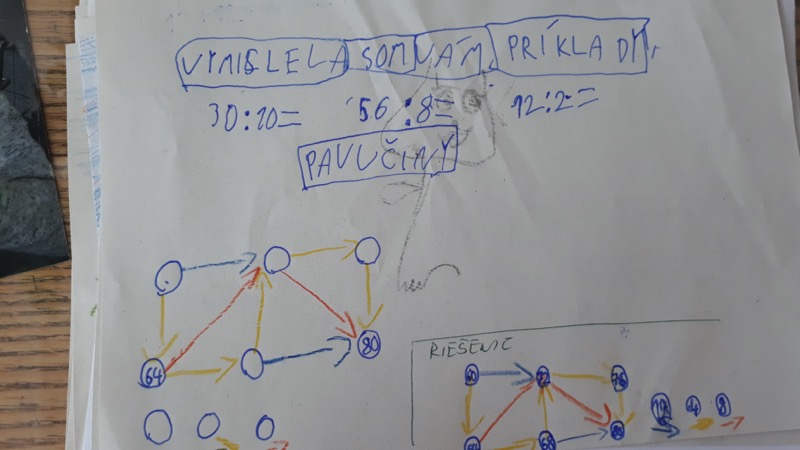 VYMISLELA SOM VÁM PRÍKLADY.
30:10= 56:8= 12:2=
PAVUČINY
64 80
RIEŠENIE
60 72 76
64 68 80 12 4 8